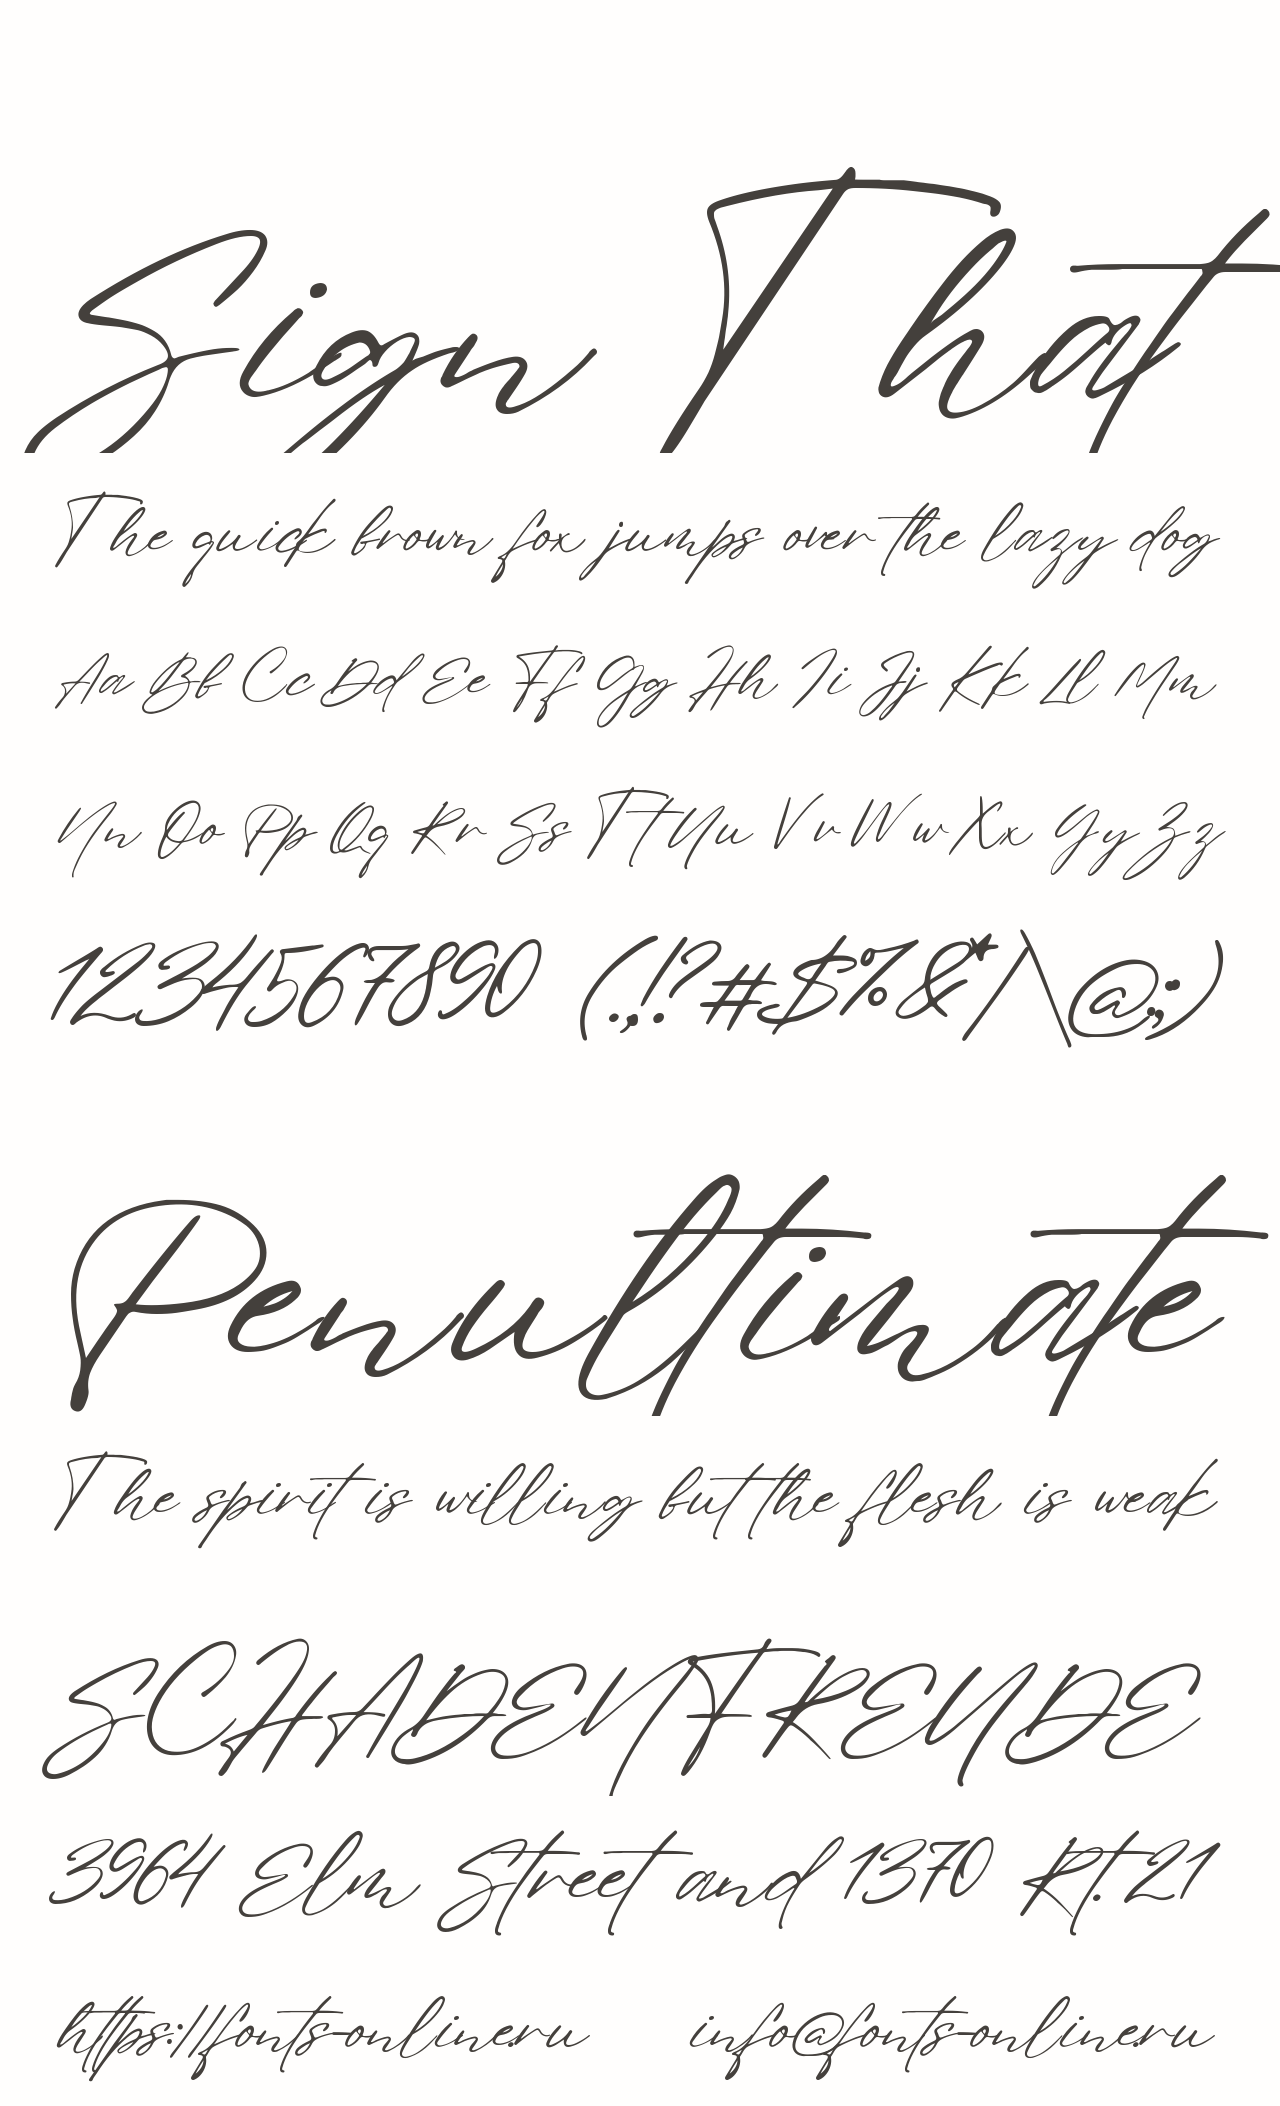 Sign That
The quick brown fox jumps over the lazy dog
Aa Bb Cc Dd Ee Ff Gg Hh Ii Jj Kk Ll Mm
Nn Oo Pp Qq Rr Ss Tt Uu Vv Ww Xx Yy Zz
1234567890 (.,!?#$%&*/\@;:)
Penultimate
The spirit is willing but the flesh is weak
SCHADENFREUDE
3964 Elm Street and 1370 Rt. 21
https://fonts-online.ru info@fonts-online.ru